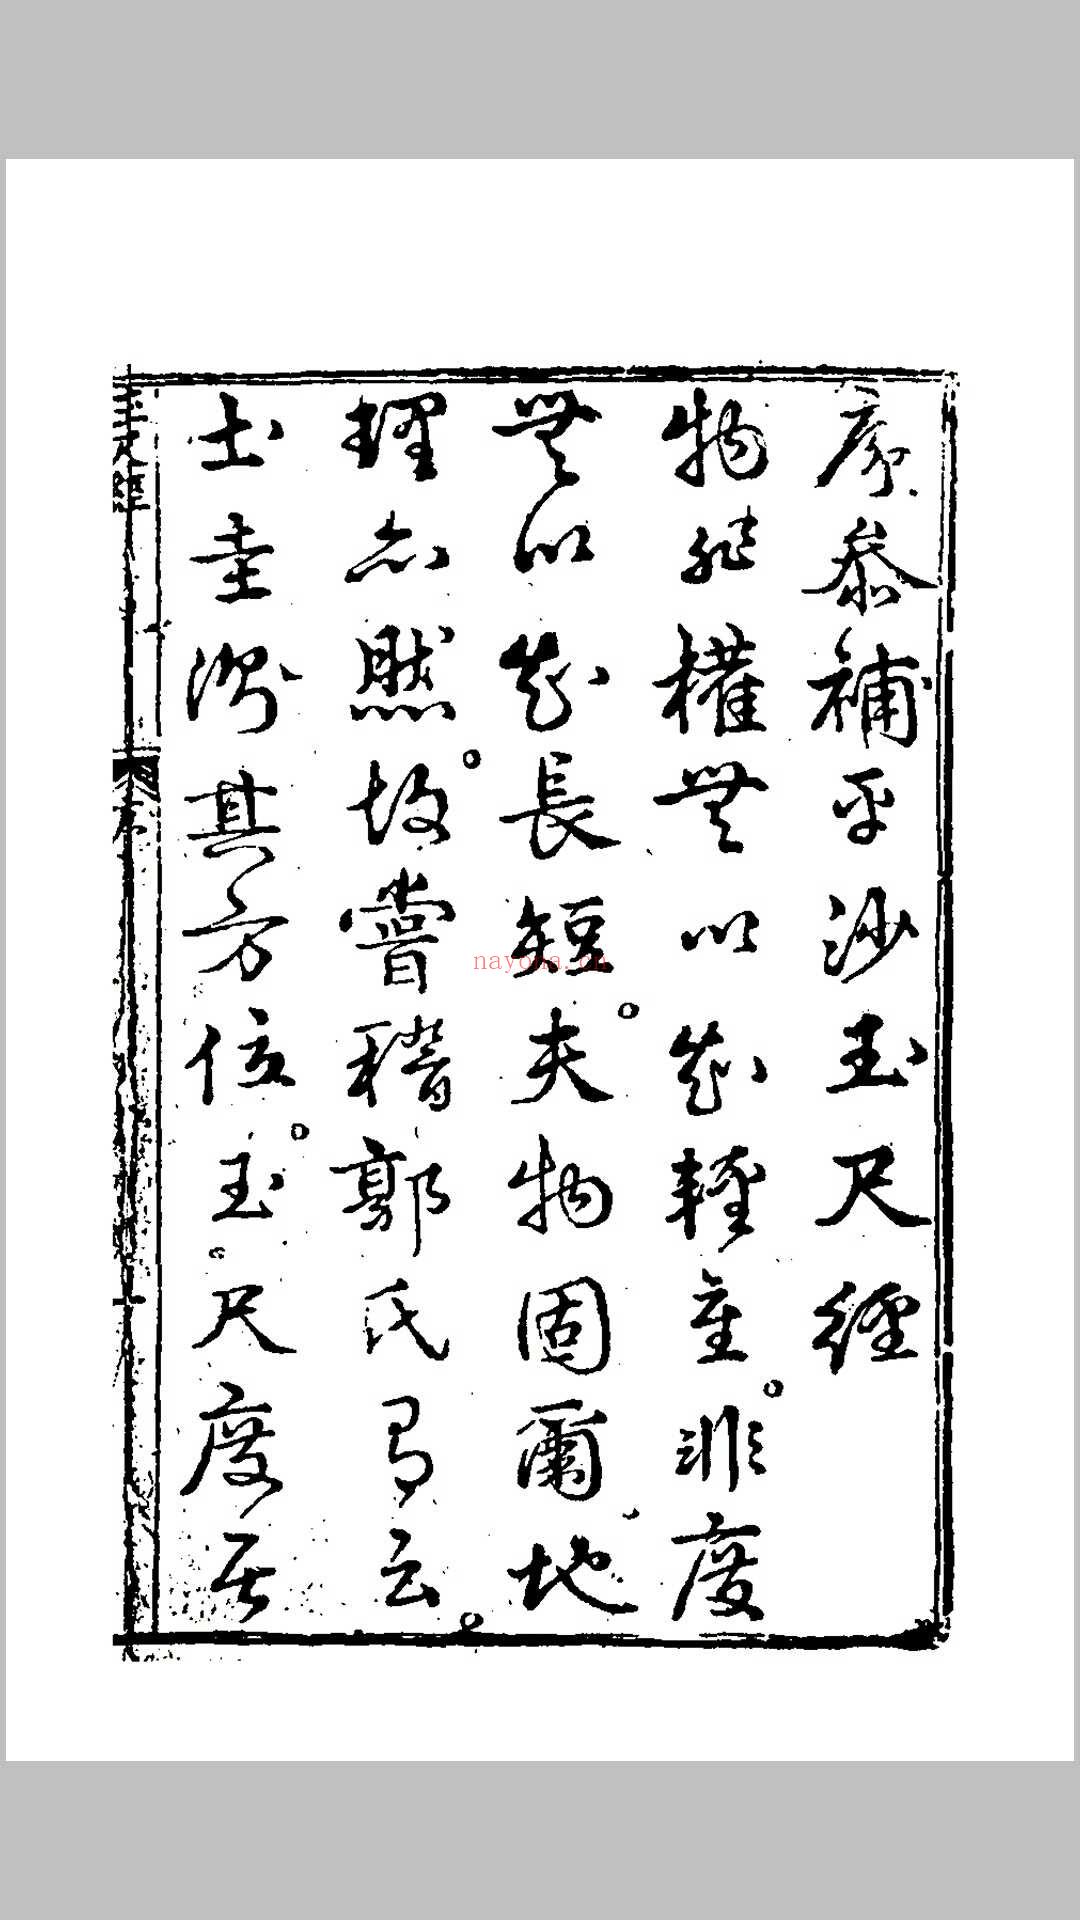 序叅補平沙玉尺經
物非權無以知輕重。非度
無以知長短。夫物固爾地
理亦然。故嘗稽郭氏有云。
土圭測其方位。玉尺度其
玉尺經 序 一
nayona.cn